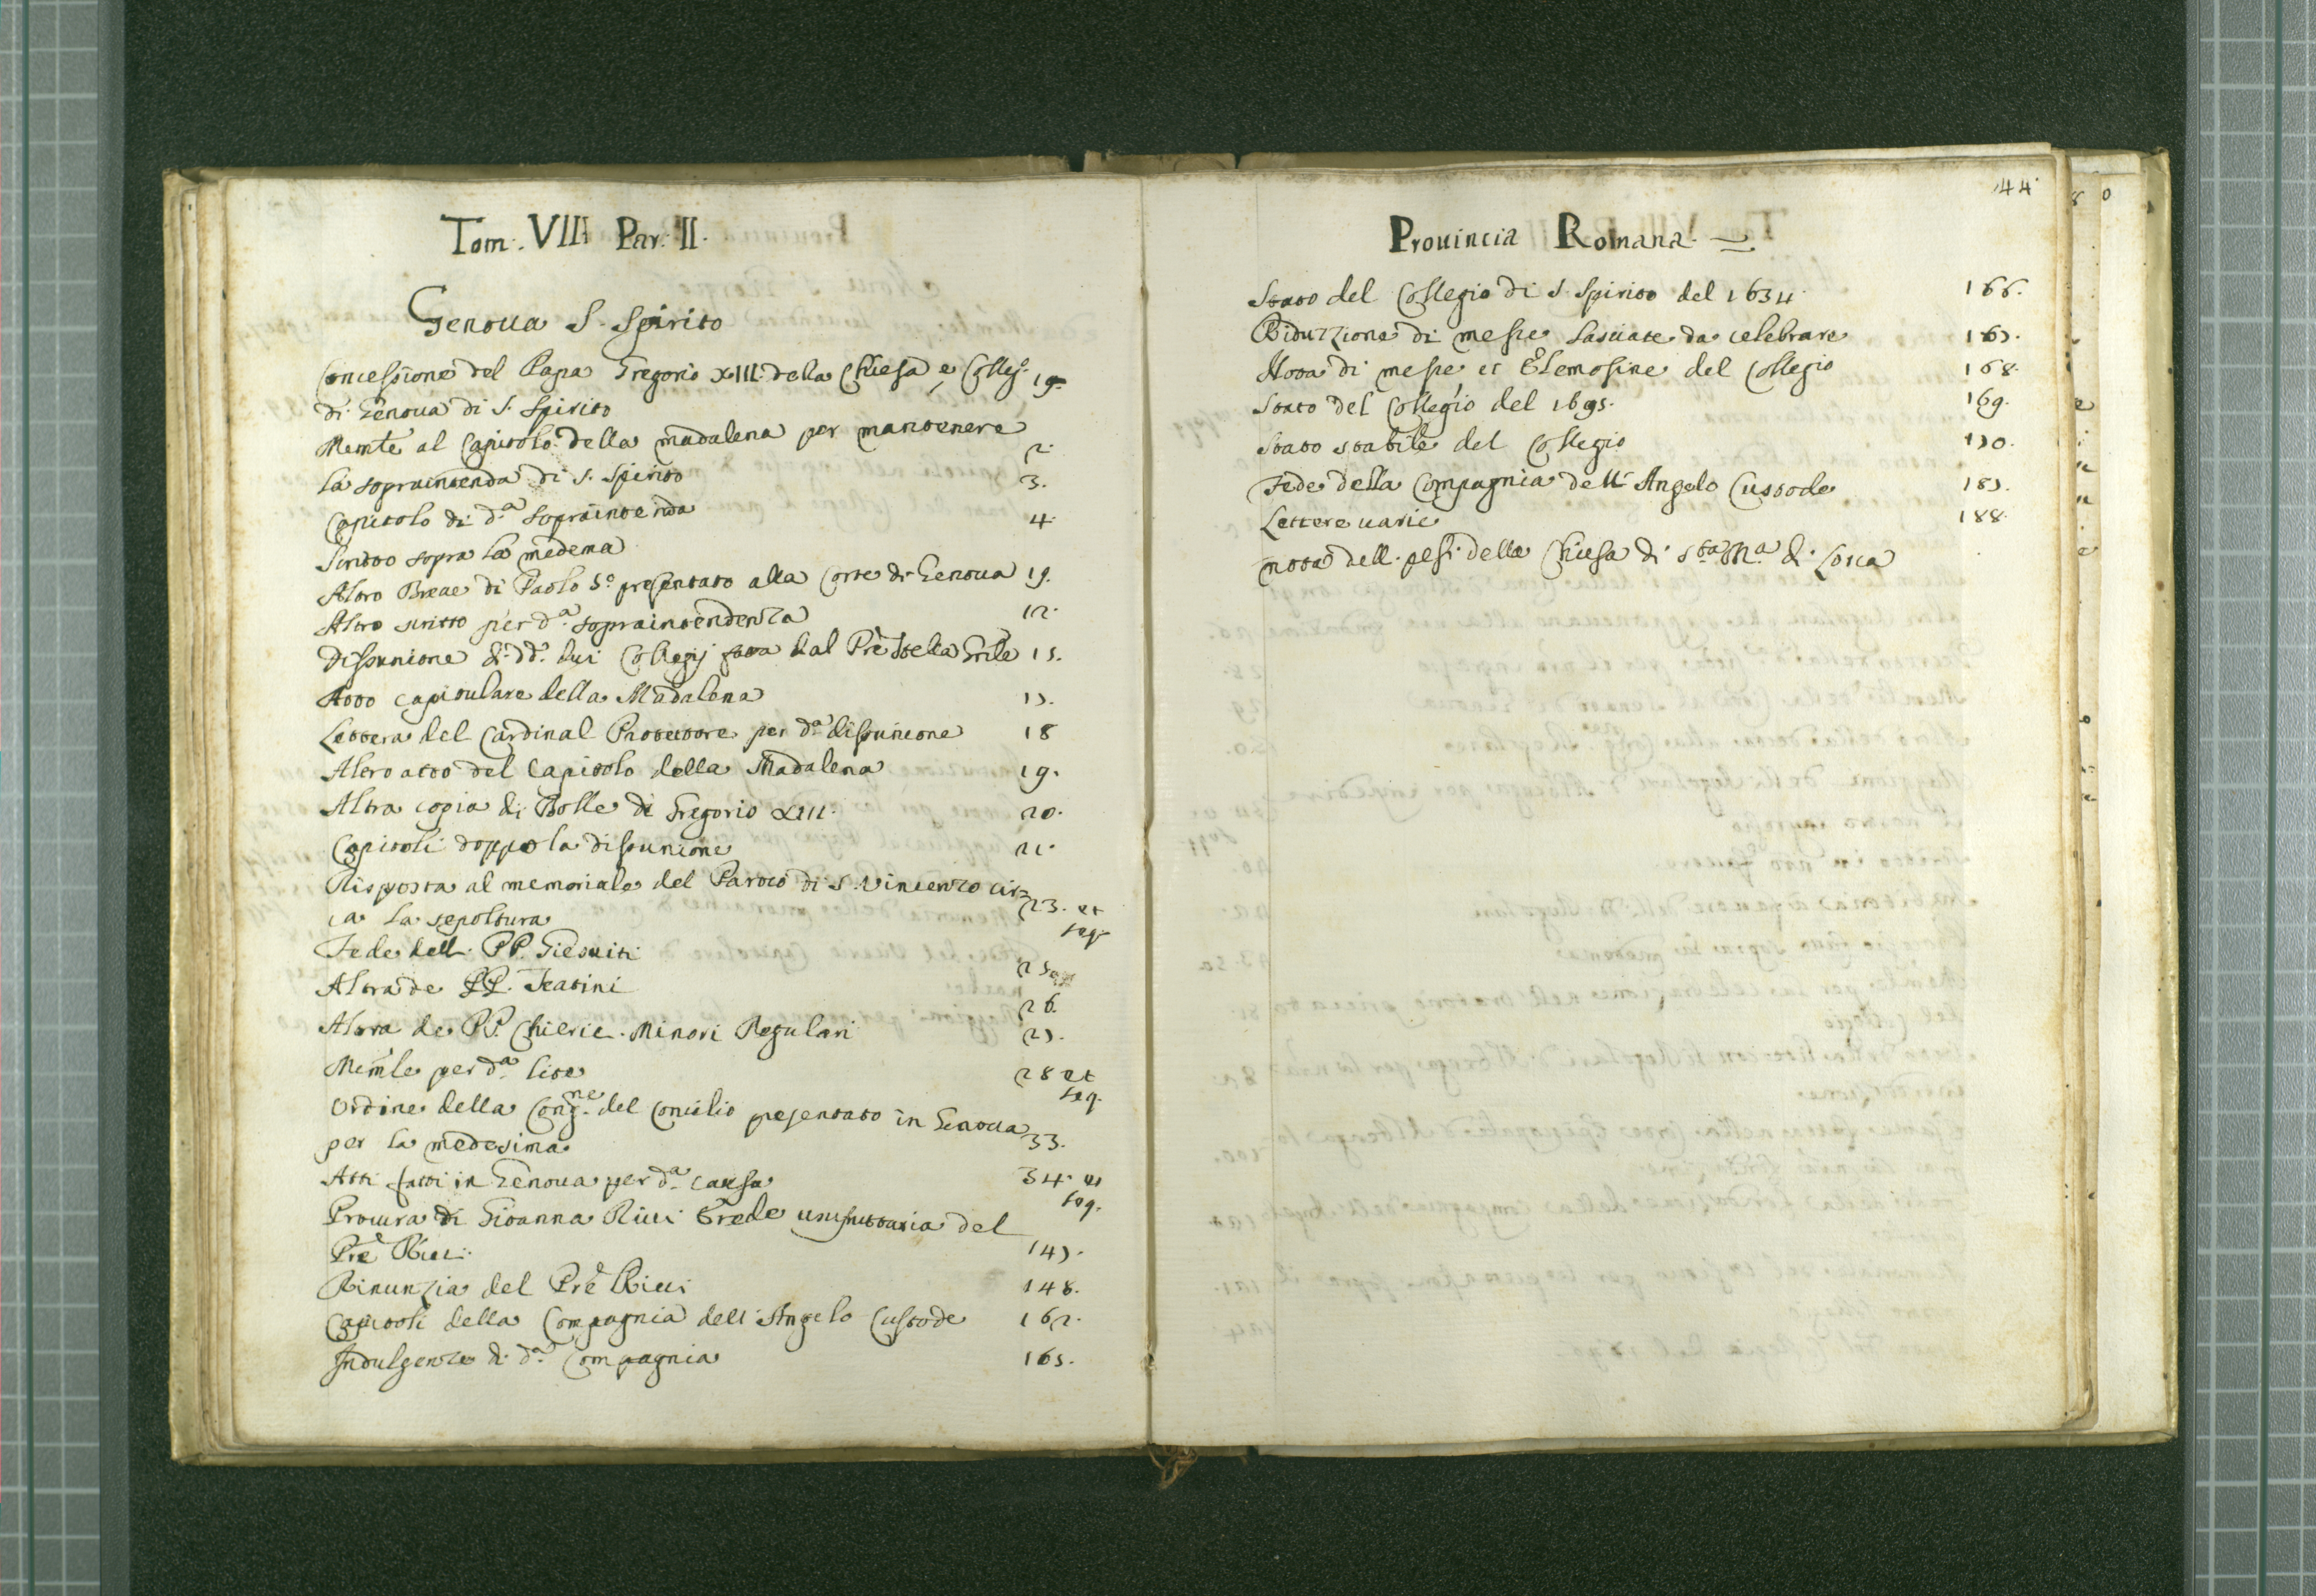 Tom. VIII Par. II.
Genoua S. Spirito
Concessione del Papa Gregorio XIII. della Chiesa e Colleg.
di Genoua di S. Spirito 19.
Memle al Capitolo della madalena per mantenere
la sopraintenda di S. Spirito 2.
Capitolo di da. sopraintenda 3.
Scritto sopra la medema 4.
Altro Breue di Paolo 5o. presentato alla Corte di Genoua 19.
Altro scritto per da. sopraintendenza 12.
Disunione di dd. dui Collegij fatta dal Pre Stella Grile 15.
Atto capitulare della Madalena 17.
Lettera del Cardinal Protettore per da. disunione 18
Altro atto del Capitolo della Madalena 19.
Altra copia di Bolle di Gregorio XIII. 20.
Capitoli doppo la disunione 21.
Risposta al memoriale del Paroco di S. Vincenzo cir=
ca la sepoltura 23. et seq.
Fede dell. PP. Giesuiti 25
Altra de PP. Teatini 26.
Altra de PP. Chieric. Minori Regulari 27.
Memle per da. lite 28 et seq.
Ordine della Congne. del Concilio presentato in Genoua
per la medesima 33.
Atti fatti in Genoua per da. causa 34. et seq.
Procura di Gioanna Ricci Erede usufruttuaria del
Pre Ricci. 147.
Rinunzia del Pre Ricci 148.
Capitoli della Compagnia dell'Angelo Custode 162.
Indulgenze di da. Compagnia 165.
44
Prouincia Romana =
Stato del Collegio di S. Spirito del 1634 166.
Riduzzione di messe lasciate da celebrare 167.
Nota di messe et Elemosine del Collegio 168.
Stato del Collegio del 1695. 169.
Stato stabile del Collegio 170.
Fede della Compagnia dell'Angelo Custode 187.
Lettere uarie 188.
nota dell. pesi della Chiesa di sta. Ma. di